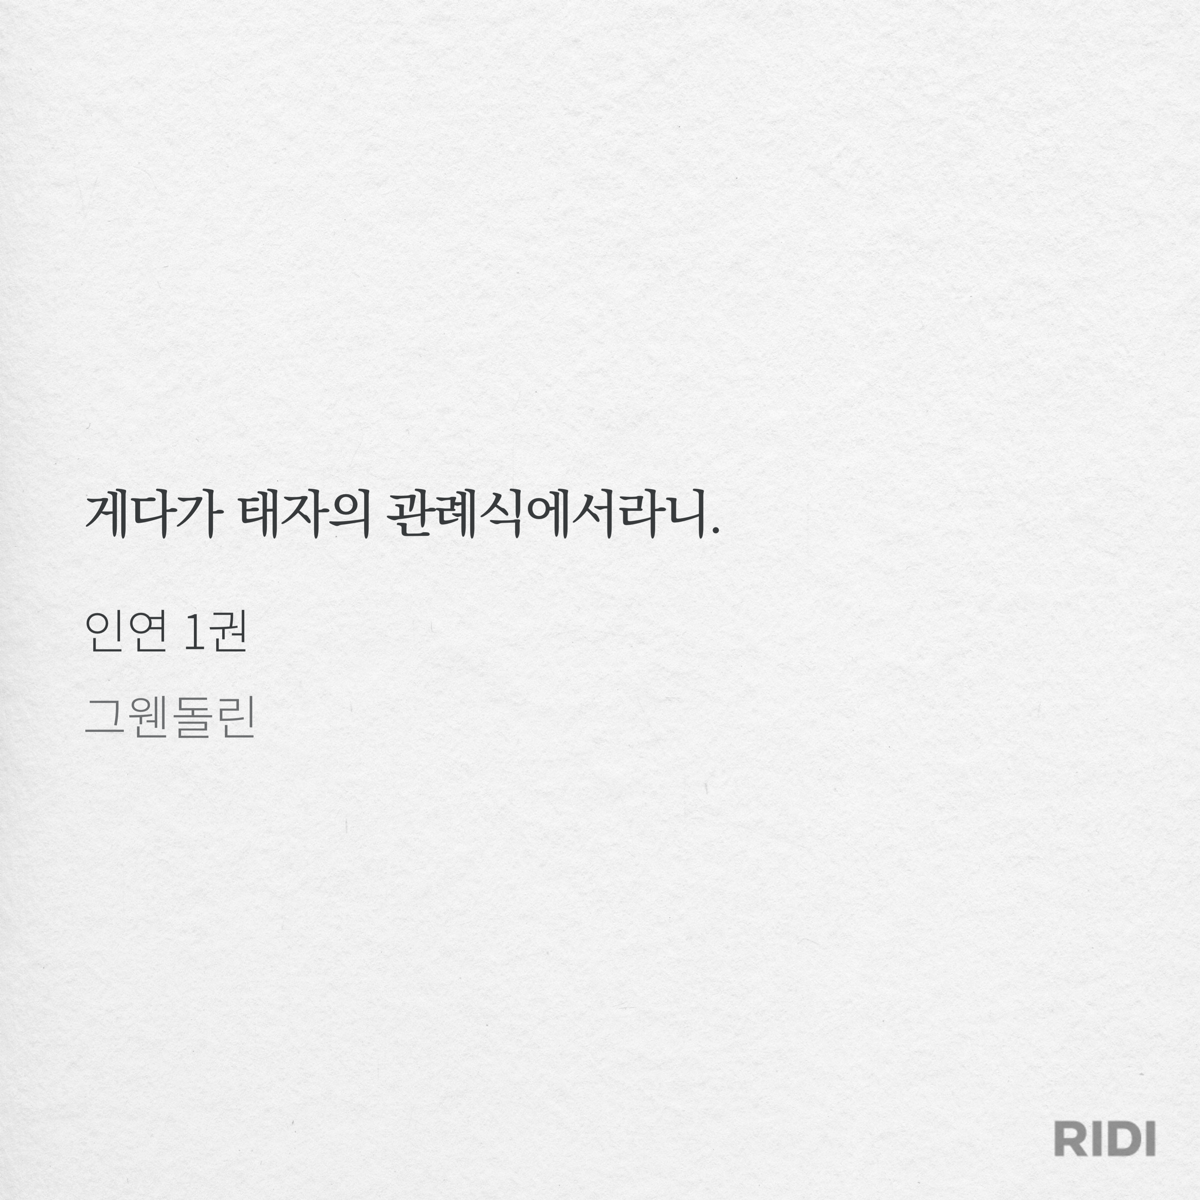 게다가 태자의 관례식에서라니.
인연 1권
그웬돌린
RIDI